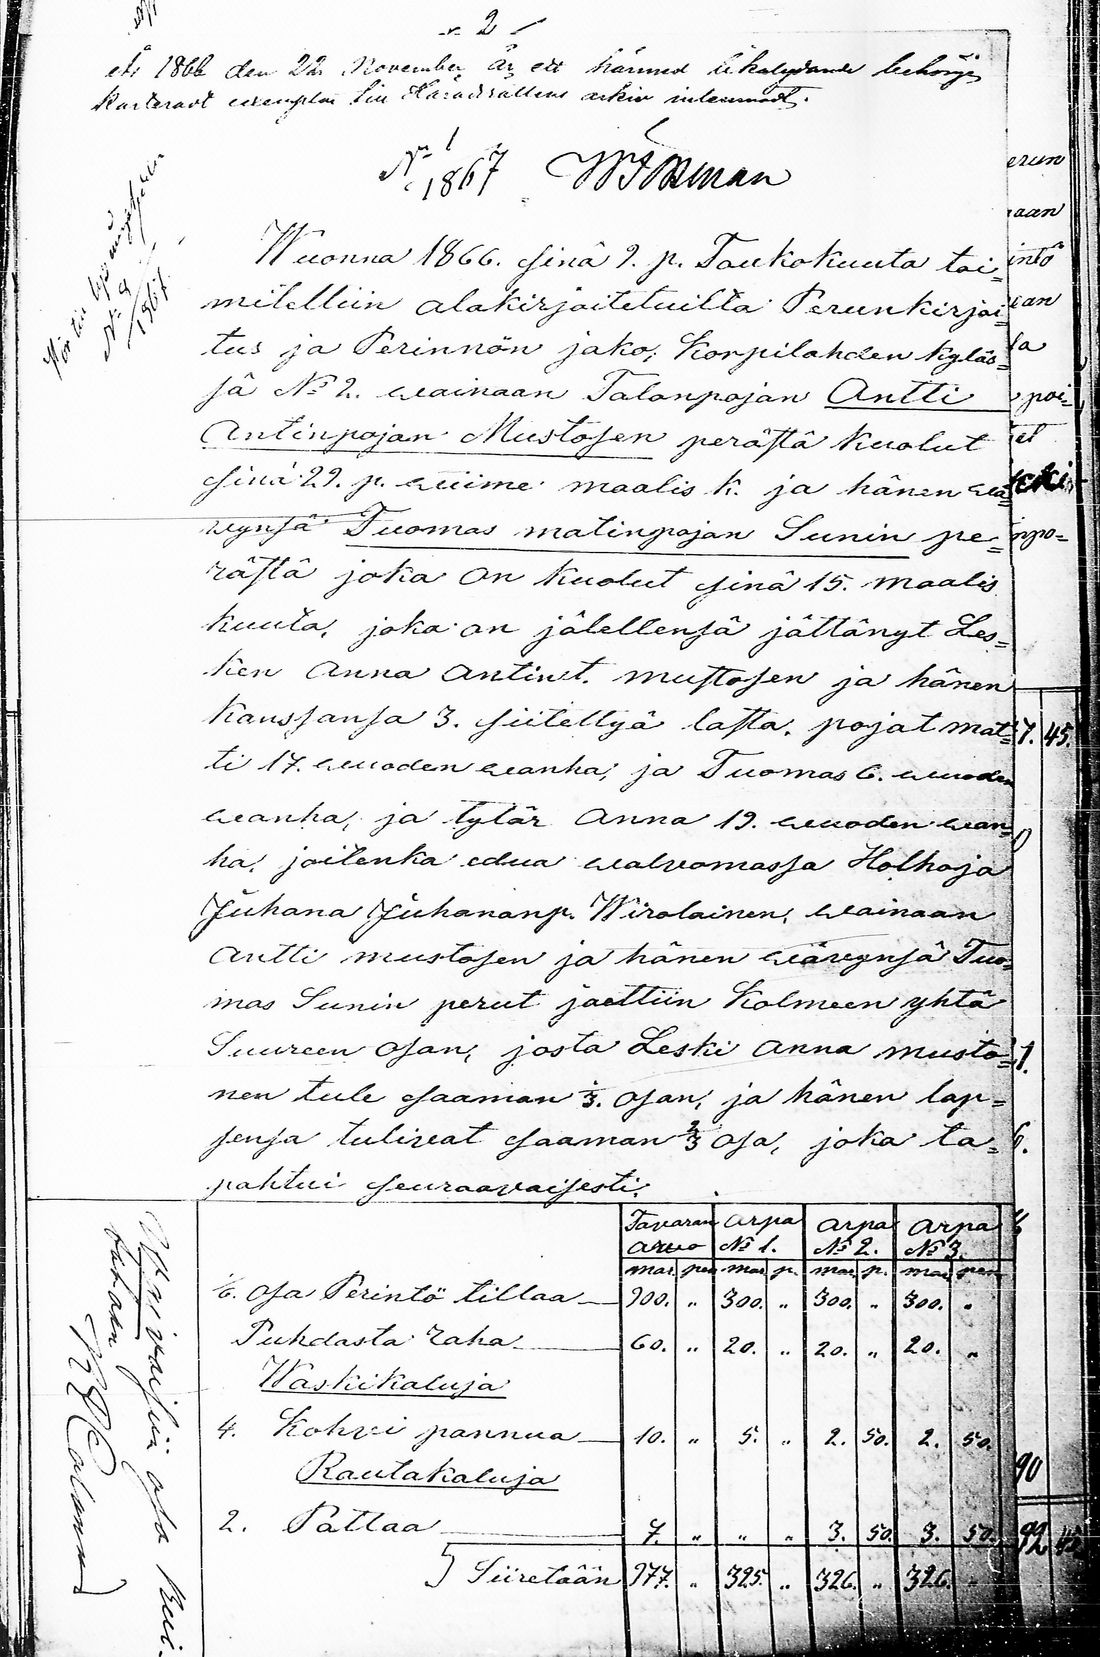 2
1866 den 22 November är ett härmed likalydande behörigt
Karteradt exemplar till Häradsrättens arkiv inlemnadt.
No 1
1867
Wuonna 1866. sinä 9. p. Toukokuuta toi=
mitelliin alakirjoitetuilta Perunkirjoi=
tus ja Perinnön jako, Korpilahden kyläs=
sä No 2. wainaan Talonpojan Antti
Antinpojan Mustosen perästä kuolut
sinä 29. p. wiime maalis k. ja hänen wä=
wynsä Tuomas matinpojan Sunin pe=
rästä joka on kuolut sinä 15. maalis
kuuta, joka on jälellensä jättänyt Les=
ken Anna Antint. mustosen ja hänen
kanssansa 3. siitettyä lasta, pojat mat=
ti 17. wuoden wanha, ja Tuomas 6. wuoden
wanha, ja tytär Anna 19. wuoden wan=
ha, joitenka edua walvomassa Holhoja
Juhana Juhananp. Wirolainen, wainaan
Antti mustosen ja hänen wäwynsä Tuo=
mas Sunin perut jaettiin Kolmeen yhtä
Suureen osan, josta Leski Anna musto=
nen tule saaman 1/3. osan, ja hänen lap=
sensa tulivat saaman 2/3 osa, joka ta=
pahtui seuraavaisesti.
Tavaran arwo Arpa No 1. Arpa No 2. Arpa No 3.
mar. pen mar. p. mar. p. mar. pen
1/6. osa Perintö tillaa 900. „ 300. „ 300. „ 300. „
Puhdasta raha 60. „ 20. „ 20. „ 20. „
Waskikaluja
4. Kohvi pannua 10. „ 5. „ 2. 50. 2. 50.
Rautakaluja
2. Pattaa 7. „ „ „ 3. 50. 3. 50.
Siiretään 977. „ 325. „ 326. „ 326. „